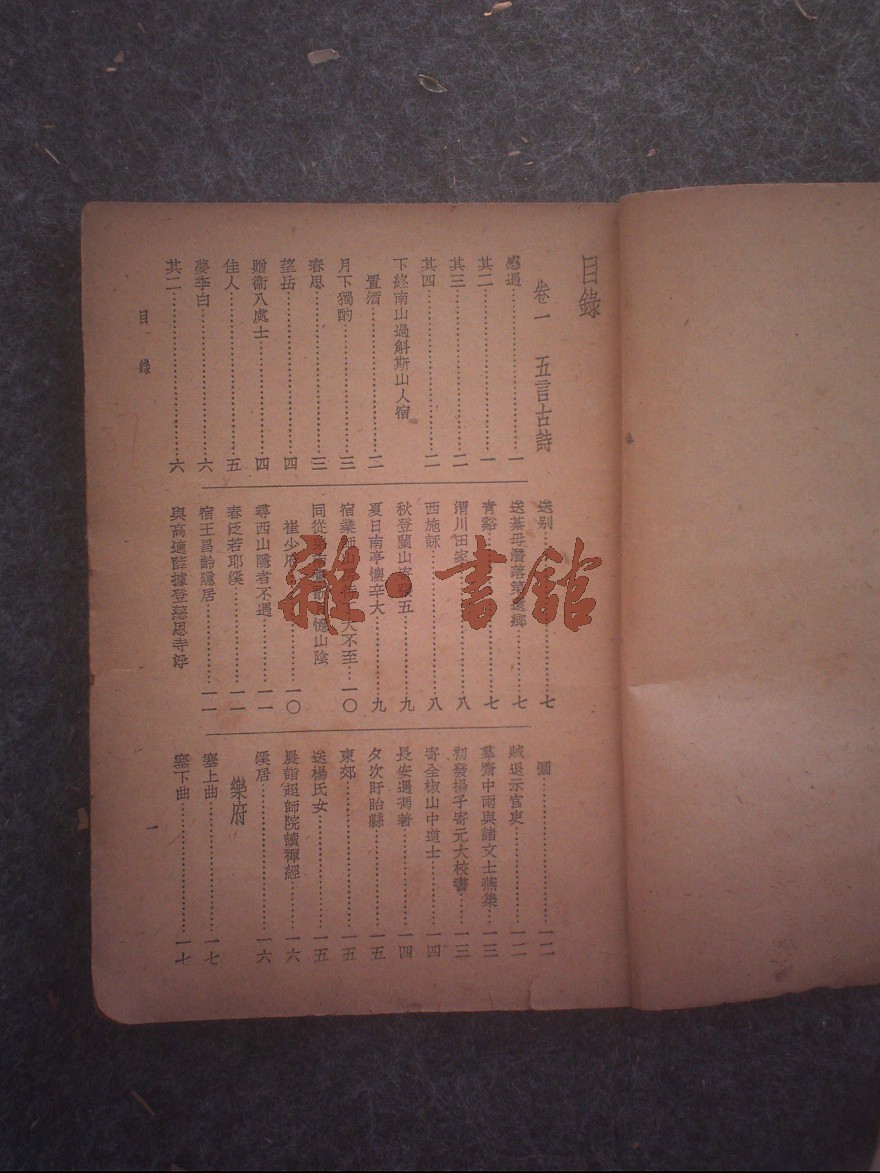 目錄
卷一 五言古詩
感遇……一
其二……一
其三……二
其四……二
下終南山過斛斯山人宿
置酒……二
月下獨酌……三
春思……三
望岳……四
贈衞八處士……四
佳人……五
夢李白……六
其二……六
送別……七
送綦毋潛落第還鄉……七
青谿……七
渭川田家……八
西施詠……八
秋登蘭山 張五……九
夏日南亭懷辛大……九
宿業師山 大不至…一〇
同從 憶山陰
崔少府……一〇
尋西山隱者不遇……一一
春泛若耶溪……一一
宿王昌齡隱居……一一
與高適薛據登慈恩寺浮
圖……一二
賊退示官吏……一二
郡齋中雨與諸文士燕集…一三
初發揚子寄元大校書…一三
寄全椒山中道士……一四
長安遇馮著……一四
夕次盱眙縣……一五
東郊……一五
送楊氏女……一五
晨詣超師院讀禪經……一六
溪居……一六
樂府
塞上曲……一七
塞下曲……一七
目錄
一
雜·書館